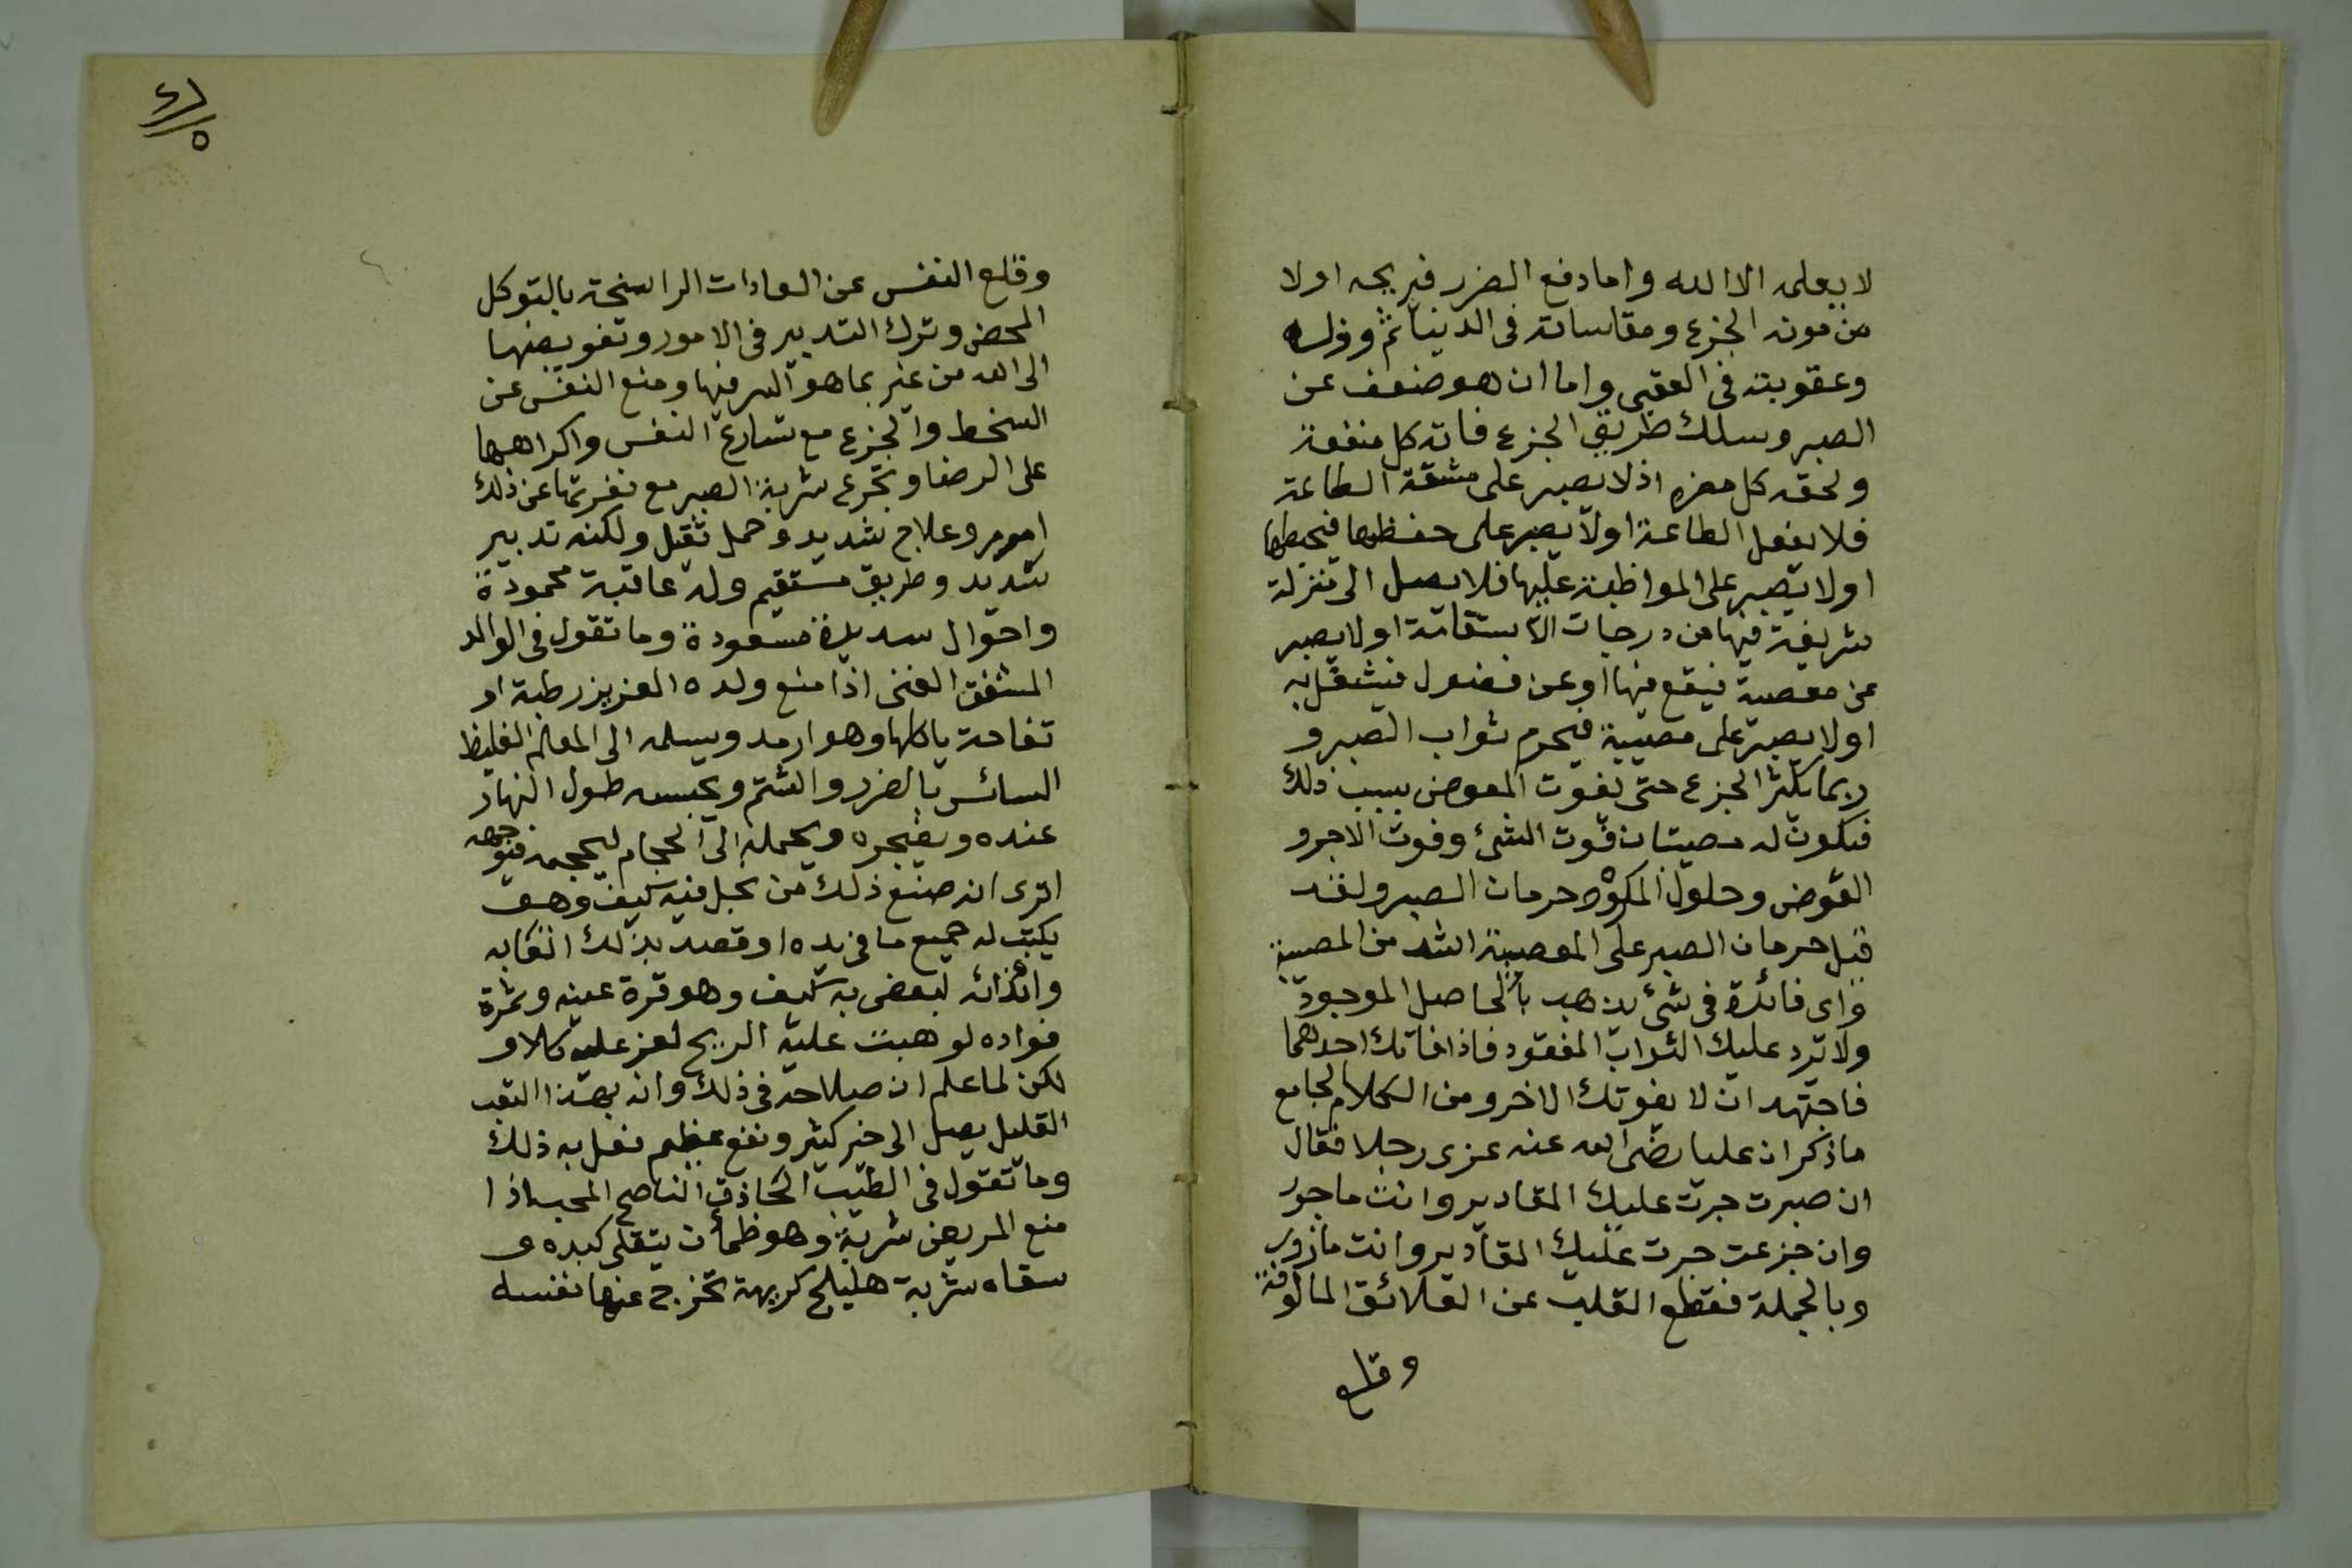 لا يعلمه الا الله واما دفع الضرر فيريحه اولا
من مونه الجزع ومقاساته فى الدنيا ثم ووزره
وعقوبته فى العقبى واما ان هو ضعف عن
الصبر وسلك طريق الجزع فاته كل منفعة
ولحقه كل مضره اذ لا يصبر على مشقة الطاعة
فلا يفعل الطاعة اولا يصبر على حفظها فيحبطها
اولا يصبر على المواظبة عليها فلا يصل الى منزلة
شريفة فيها من درجات الاستقامة اولا يصبر
عن معصية فيقع فيها او عن فضول فيشتغل به
اولا يصبر على مصيبة فيحرم ثواب الصبر و
ربما يكثر الجزع حتى يفوت العوض بسبب ذلك
فيكون له مصيبتان فوت الشئ وفوت الاجر و
العوض وحلول المكروه حرمان الصبر ولقد
قيل حرمان الصبر على المصيبة اشد من المصيبة
واى فائدة فى شئ يذهب بالحاصل الموجود
ولا ترد عليك الثواب المفقود فاذا فاتك احدهما
فاجتهد ان لا يفوتك الاخر ومن الكلام الجامع
ما ذكر ان عليا رضى الله عنه عزى رجلا فقال
ان صبرت جرت عليك المقادير وانت ماجور
وان جزعت جرت عليك المقادير وانت مازور
وبالجملة فقطع القلب عن العلائق المالوفة
وقلع
٤٦/٥
وقلع النفس عن العادات الراسخة بالتوكل
المحض وترك التدبير فى الامور وتفويضها
الى الله من غير بما هو السر فيها ومنع النفس عن
السخط والجزع مع تسارع النفس واكراهها
على الرضا وتجرع شربة الصبر مع نفرتها عن ذلك
امر مر وعلاج شديد وحمل ثقيل ولكنه تدبير
سديد وطريق مستقيم وله عاقبة محمودة
واحوال سديدة مسعودة وما تقول فى الوالد
المشفق الغنى اذا منع ولده العزيز رطبة او
تفاحة ياكلها وهو ارمد ويسلمه الى المعلم الغليظ
السائس بالضرر والشتم ويحبسه طول النهار
عنده ويضجره ويحمله الى الحجام ليحجمه فيوجعه
اترى انه صنع ذلك من بخل فيه كيف وهو
يكتب له جميع ما فى يده او قصد بذلك اتعابه
وايذائه لبغض به كيف وهو قرة عينه وثمرة
فواده لو هبت عليه الريح لعز عليه كلا و
لكن لما علم ان صلاحه فى ذلك وانه بهذا التعب
القليل يصل الى خير كثير ونفع عظيم فعل به ذلك
وما تقول فى الطيب الحاذق الناصح المحب اذا
منع المريض شربة وهو ظمأن يتقلى كبده و
سقاه شربة هليلج كريهة تخرج عنها نفسه